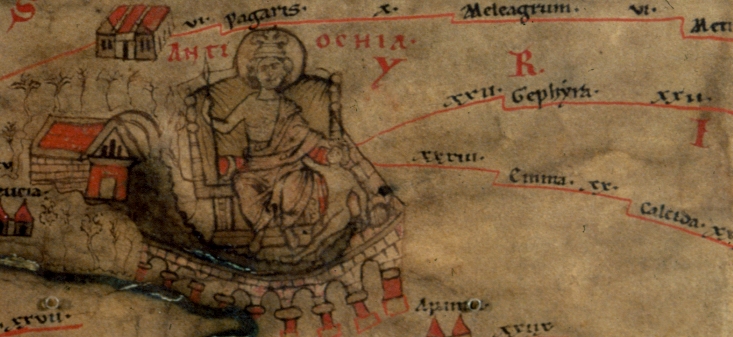 S
VI. Pagaris. X. Meleagrum. VI. Meti
ANTIOCHIA.
Y R I
XXII. Gephyra. XXII.
XXXIII. Emma. XX. Calcida. XV
eucia.
Apamia.
XXVII.